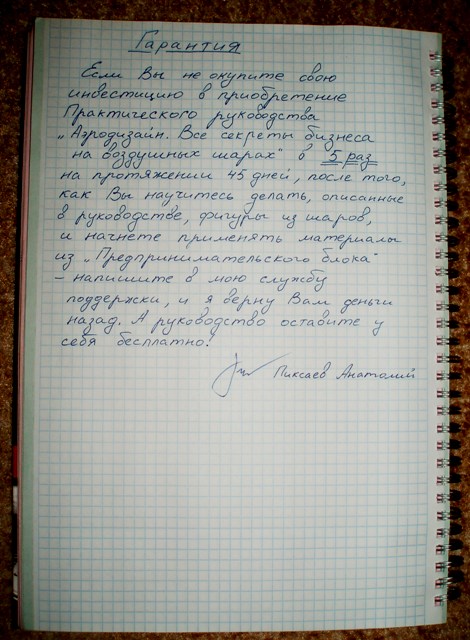 Гарантия
Если Вы не окупите свою
инвестицию в приобретение
Практического руководства
„Аэродизайн. Все секреты бизнеса
на воздушных шарах" в 5 раз
на протяжении 45 дней, после того,
как Вы научитесь делать, описанные
в руководстве, фигуры из шаров,
и начнете применять материалы
из „Предпринимательского блока"
– напишите в мою службу
поддержки, и я верну Вам деньги
назад. А руководство оставите у
себя бесплатно!
Пиксаев Анатолий